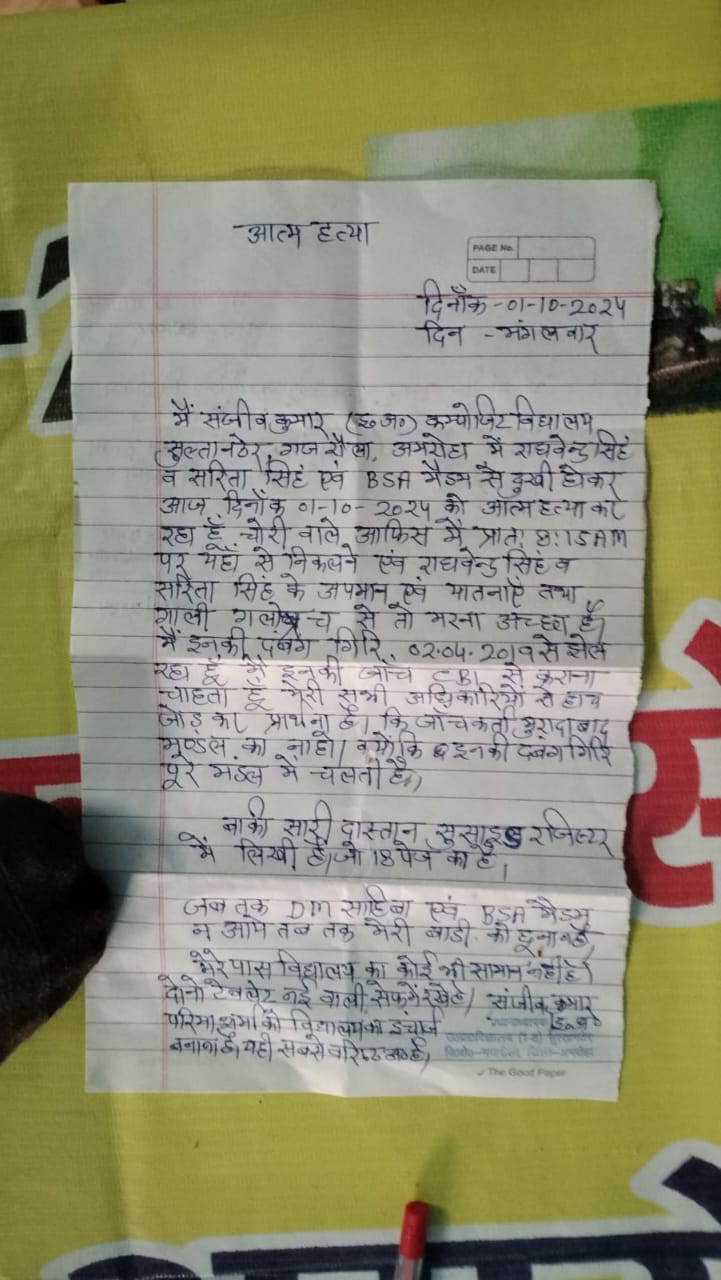 आत्म हत्या
PAGE No.
DATE
दिनाँक -01-10-2024
दिन - मंगलवार
मैं संजीव कुमार (इ०अ०) कम्पोजिट विद्यालय
सुल्तानठेर, गजरौला, अमरोहा में राघवेन्द्र सिंह
व सरिता सिंह एवं BSA मैडम से दुखी होकर
आज दिनाँक 01-10-2024 को आत्म हत्या कर
रहा हूँ चोरी वाले आफिस में प्रातः 8:15AM
पर यहाँ से निकलने एवं राघवेन्द्र सिंह व
सरिता सिंह के अपमान एवं यातनाएँ तथा
गाली गलोच से तो मरना अच्छा है।
मैं इनकी दबंग गिरि 02.04.2019 से झेल
रहा हूँ मैं इनकी जाँच CBI से कराना
चाहता हूँ मेरी सभी अधिकारियों से हाथ
जोड़ कर प्रार्थना है। कि जाँचकर्ता मुरादाबाद
मण्डल का ना हो। क्योंकि इनकी दबंगगिरि
पूरे मंडल में चलती है।
बाकी सारी दास्तान सुसाइड रजिस्टर
में लिखी है। जो 18 पेज का है।
जब तक DM साहिबा एवं BSA मैडम
न आये तब तक मेरी बाडी को छूना नहीं
मेरे पास विद्यालय का कोई भी सामान नहीं है।
दोनों टेबलेट नई वाली सेफ में रखे है। संजीव कुमार
परिमा शर्मा को विद्यालय का इंचार्ज इ०अ०
बनाना है, यही सबसे वरिष्ठ अ० है,
The Good Paper